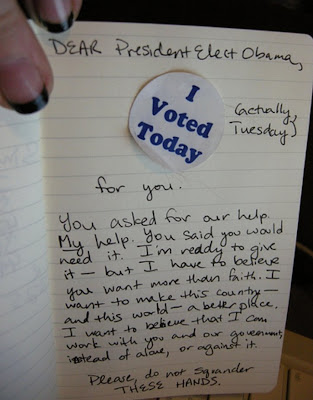 DEAR President Elect Obama,
I
Voted
Today
(actually,
Tuesday)
for you.
You asked for our help.
My help. You said you would
need it. I'm ready to give
it — but I have to believe
you want more than faith. I
want to make this country —
and this world — a better place.
I want to believe that I can
work with you and our government,
instead of alone, or against it.
Please, do not squander
THESE HANDS.